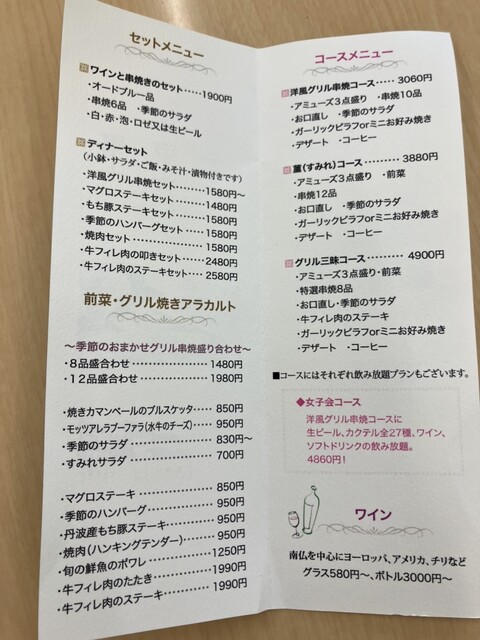 セットメニュー
ワインと串焼きのセット‥‥‥1900円
・オードブル一品
・串焼6品　・季節のサラダ
・白・赤・泡・ロゼ又は生ビール
ディナーセット
(小鉢・サラダ・ご飯・みそ汁・漬物付きです)
・洋風グリル串焼セット‥‥‥1580円〜
・マグロステーキセット‥‥‥1480円
・もち豚ステーキセット‥‥‥1580円
・季節のハンバーグセット‥‥‥1580円
・焼肉セット‥‥‥‥‥‥1580円
・牛フィレ肉の叩きセット‥‥‥2480円
・牛フィレ肉のステーキセット‥‥2580円
前菜・グリル焼きアラカルト
〜季節のおまかせグリル串焼盛り合わせ〜
・8品盛合わせ‥‥‥‥‥‥1480円
・12品盛合わせ‥‥‥‥‥‥1980円
・焼きカマンベールのブルスケッタ‥‥‥850円
・モッツアレラブーファラ(水牛のチーズ)‥‥‥950円
・季節のサラダ‥‥‥‥‥‥830円〜
・すみれサラダ‥‥‥‥‥‥700円
・マグロステーキ‥‥‥‥‥‥850円
・季節のハンバーグ‥‥‥‥‥‥950円
・丹波産もち豚ステーキ‥‥‥‥950円
・焼肉(ハンキングテンダー)‥‥‥950円
・旬の鮮魚のポワレ‥‥‥‥1250円
・牛フィレ肉のたたき‥‥‥‥1990円
・牛フィレ肉のステーキ‥‥‥1990円
コースメニュー
洋風グリル串焼コース‥‥‥3060円
・アミューズ3点盛り　・串焼10品
・お口直し　・季節のサラダ
・ガーリックピラフorミニお好み焼き
・デザート　・コーヒー
菫(すみれ)コース‥‥‥‥3880円
・アミューズ3点盛り　・前菜
・串焼12品
・お口直し　・季節のサラダ
・ガーリックピラフorミニお好み焼き
・デザート　・コーヒー
グリル三昧コース‥‥‥‥4900円
・アミューズ3点盛り・前菜
・特選串焼8品
・お口直し・季節のサラダ
・牛フィレ肉のステーキ
・ガーリックピラフorミニお好み焼き
・デザート　・コーヒー
■コースにはそれぞれ飲み放題プランもございます。
◆女子会コース
洋風グリル串焼コースに
生ビール、カクテル全27種、ワイン、
ソフトドリンクの飲み放題。
4860円!
ワイン
南仏を中心にヨーロッパ、アメリカ、チリなど
グラス580円〜、ボトル3000円〜